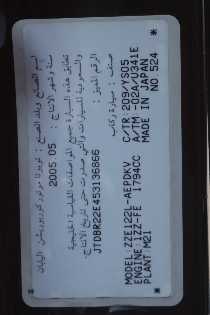 اسم الصانع وبلد الصنع : تويوتا موتور كوربوريشن اليابان
سنة وشهر الانتاج : 05 2005
تطابق هذه السيارة جميع المواصفات القياسية الخليجية
والسعودية للسيارات والتي صدرت حتى تاريخ الانتاج.
الرقم المميز : JTDBR22E453136866
صنف : سيارة ركاب
MODEL:ZZE122L-AEPDKV C/TR 209/YS05
ENGINE:1ZZ-FE 1794CC A/TM -02A/U341E
PLANT:M21 MADE IN JAPAN
NO 524